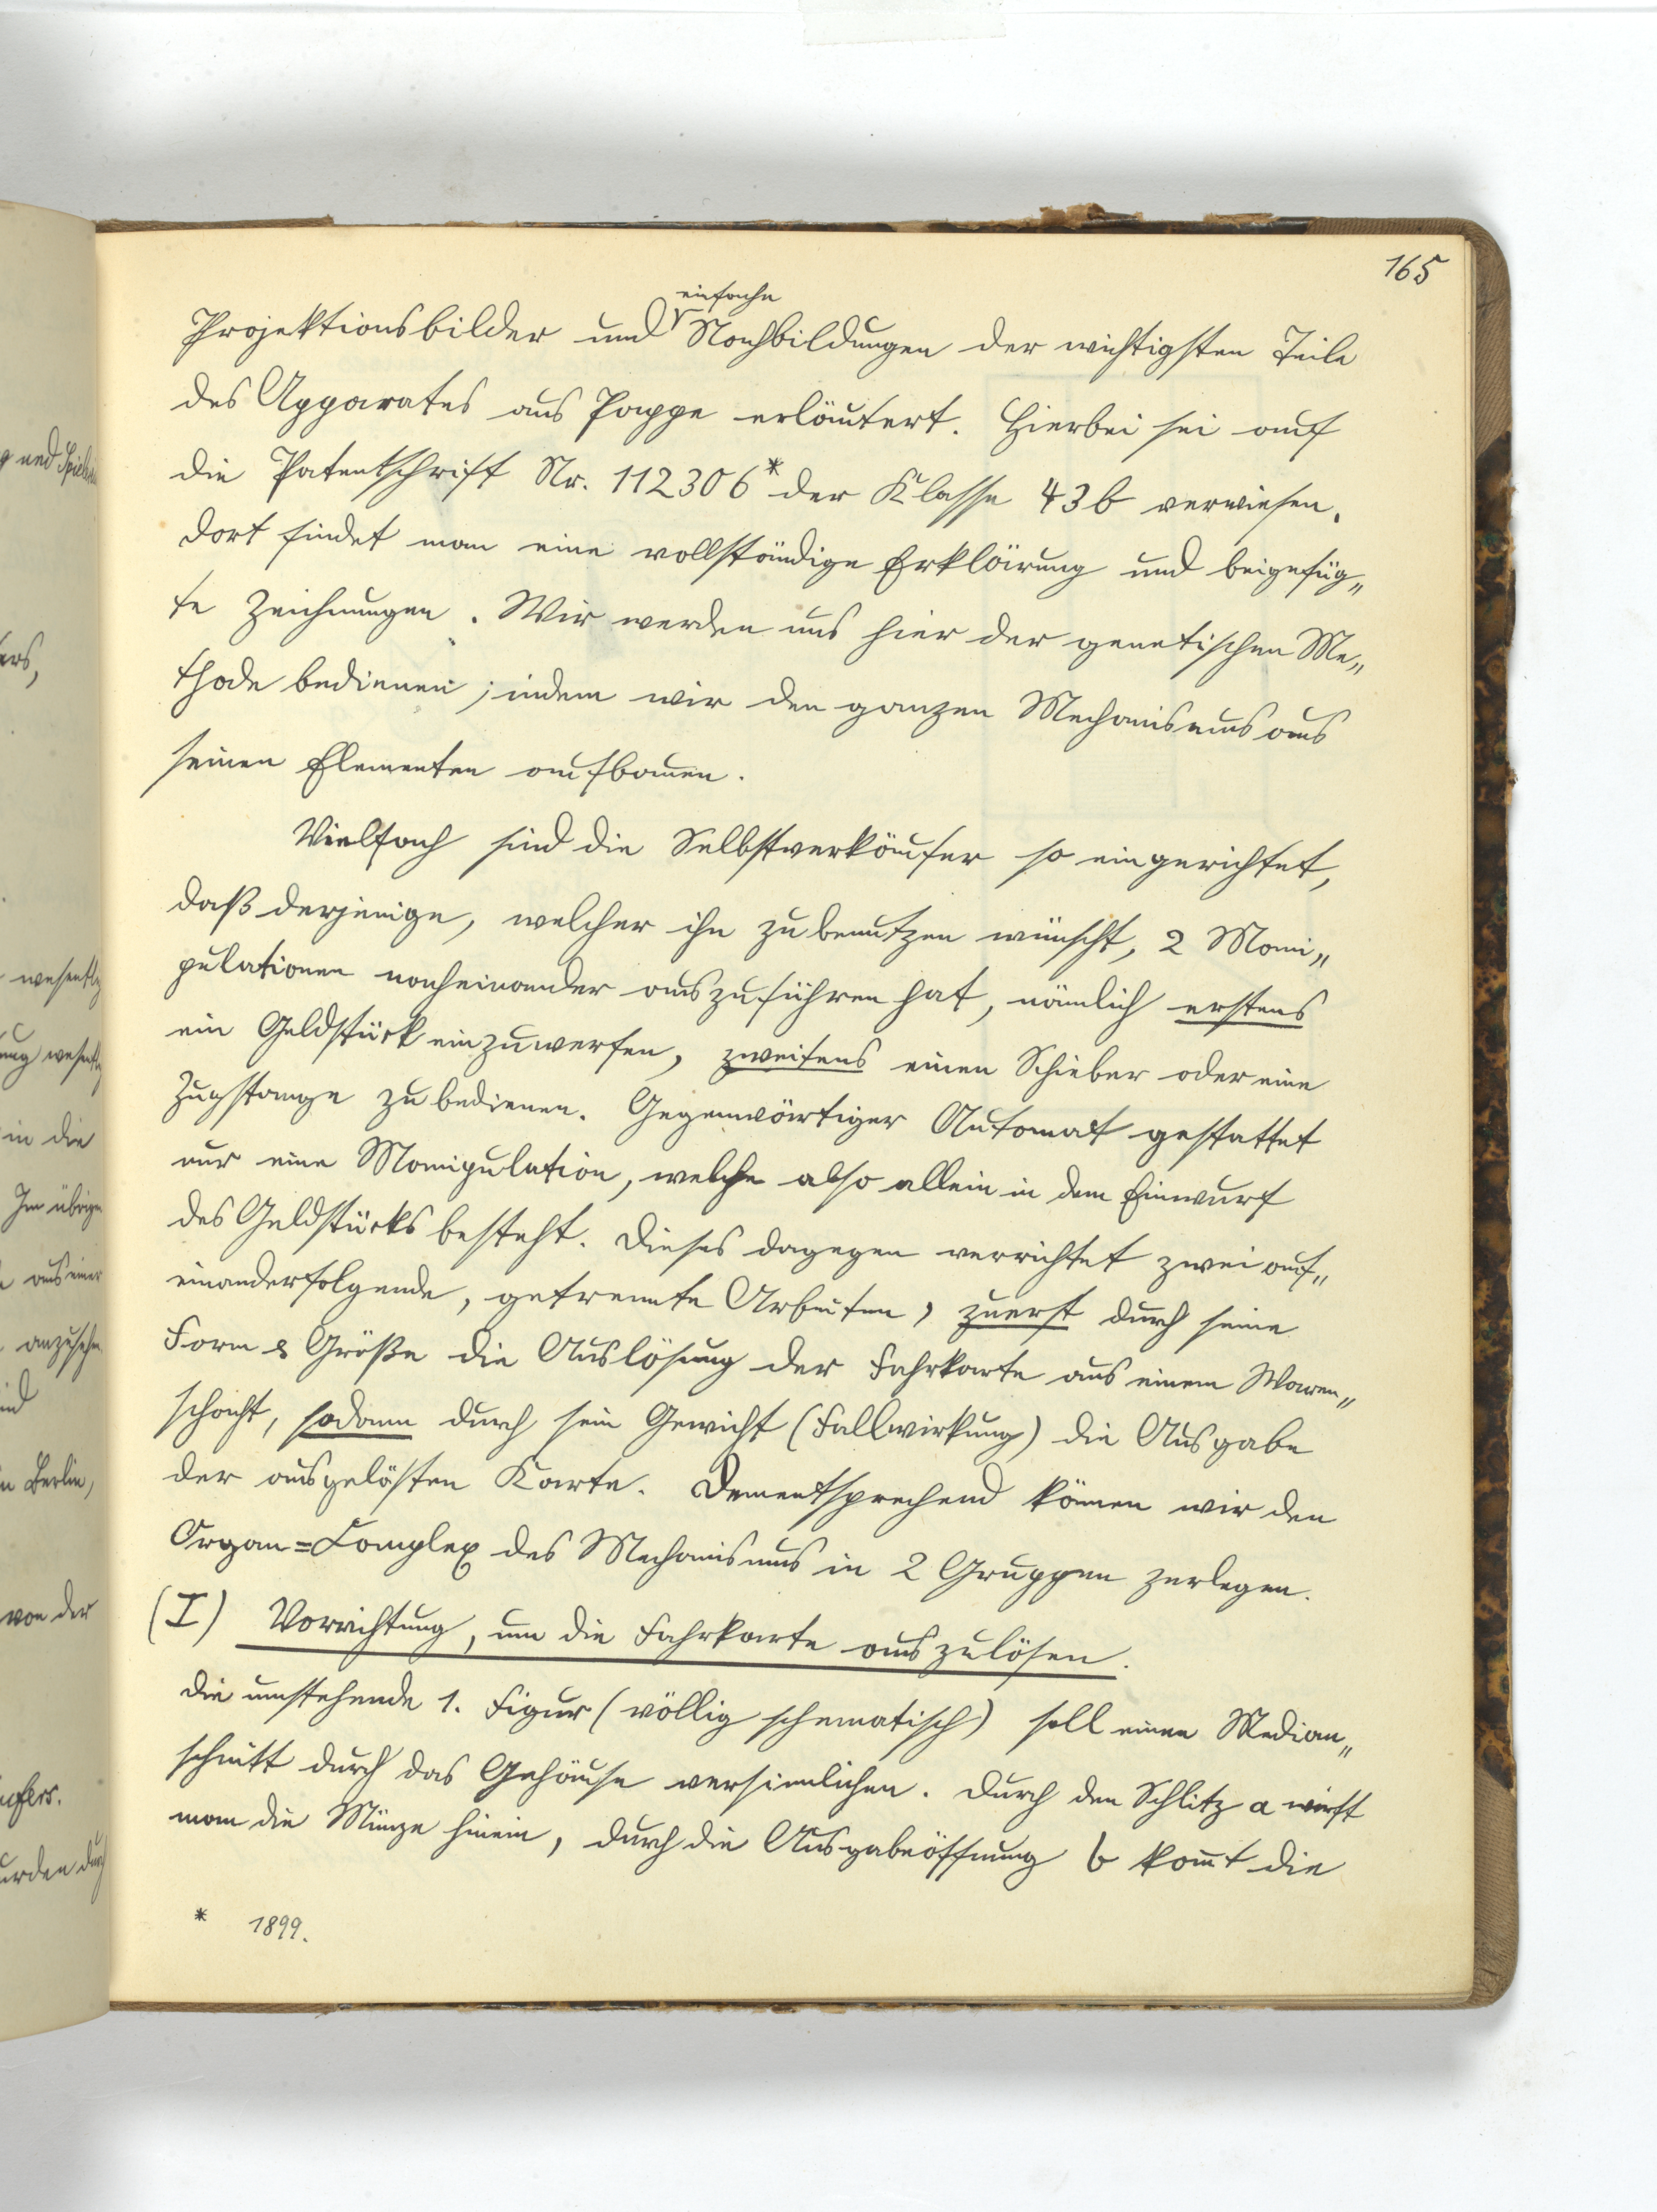 165
einfache
Projektionsbilder und Nachbildungen der wichtigsten Teile
des Apparates aus Pappe erläutert. Hierbei sei auf
die Patentschrift Nr. 112306* der Klasse 43b verwiesen.
dort findet man eine vollständige Erklärung und beigefüg„
te Zeichnungen. Wir werden uns hier der genetischen Me„
thode bedienen; indem wir den ganzen Mechanismus aus
seinen Elementen aufbauen.
Vielfach sind die Selbstverkäufer so eingerichtet,
daß derjenige, welcher ihn zu benutzen wünscht, 2 Mani„
pulationen nacheinander auszuführen hat, nämlich erstens
ein Geldstück einzuwerfen, zweitens einen Schieber oder eine
Zugstange zu bedienen. Gegenwärtiger Automat gestattet
nur eine Manipulation, welche also allein in dem Einwurf
des Geldstücks besteht. Dieses dagegen verrichtet zwei auf„
einanderfolgende, getrennte Arbeiten, zuerst durch seine
Form & Größe die Auslösung der Fahrkarte aus einem Waren„
schacht, sodann durch sein Gewicht (Fallwirkung) die Ausgabe
der ausgelösten Karte. Dementsprechend können wir den
Organ=Complex des Mechanismus in 2 Gruppen zerlegen.
(I) Vorrichtung, um die Fahrkarte auszulösen.
die umstehende 1. Figur (völlig schematisch) soll einen Median„
schnitt durch das Gehäuse versinnlichen. Durch den Schlitz a wirft
man die Münze hinein, durch die Ausgabeöffnung b kom̅t die
* 1899.
g und
ers,
wesentlg
ung wesentlg
in die
Im übrigen
aus einer
anzusehn
in Berlin,
von der
urden durch